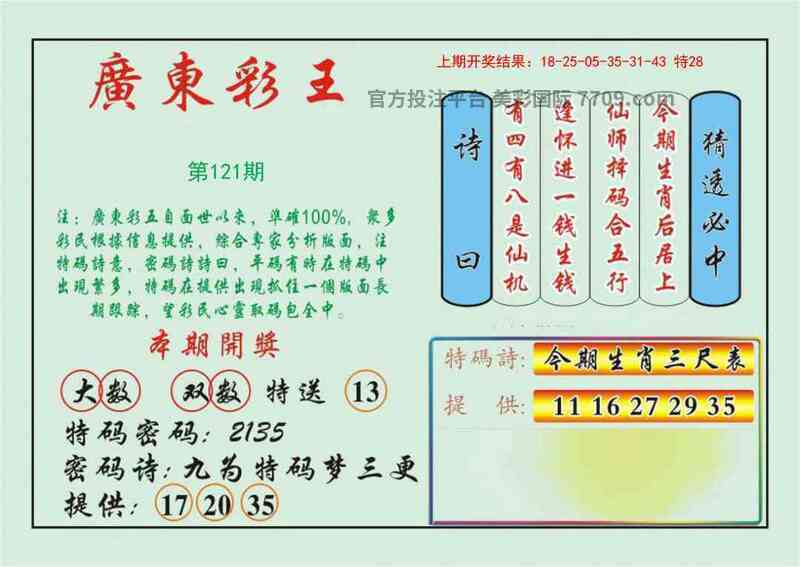 廣東彩王
上期开奖结果：18-25-05-35-31-43 特28
官方投注平台 美彩国际 7709.com
第121期
注：廣東彩五自面世以來，準確100%，衆多
彩民根據信息提供，綜合專家分析版面，注
特碼詩意，密碼詩詩曰，平碼有時在特碼中
出現繁多，特碼在提供出現抓住一個版面長
期跟踪，望彩民心靈取碼包全中。
本期開獎
大数 双数 特送 13
特码密码：2135
密码诗：九为特码梦三更
提供：17 20 35
猜透必中
今期生肖后居上
仙师择码合五行
逢怀进一钱生钱
有四有八是仙机
诗曰
特碼詩：今期生肖三尺表
提供：11 16 27 29 35